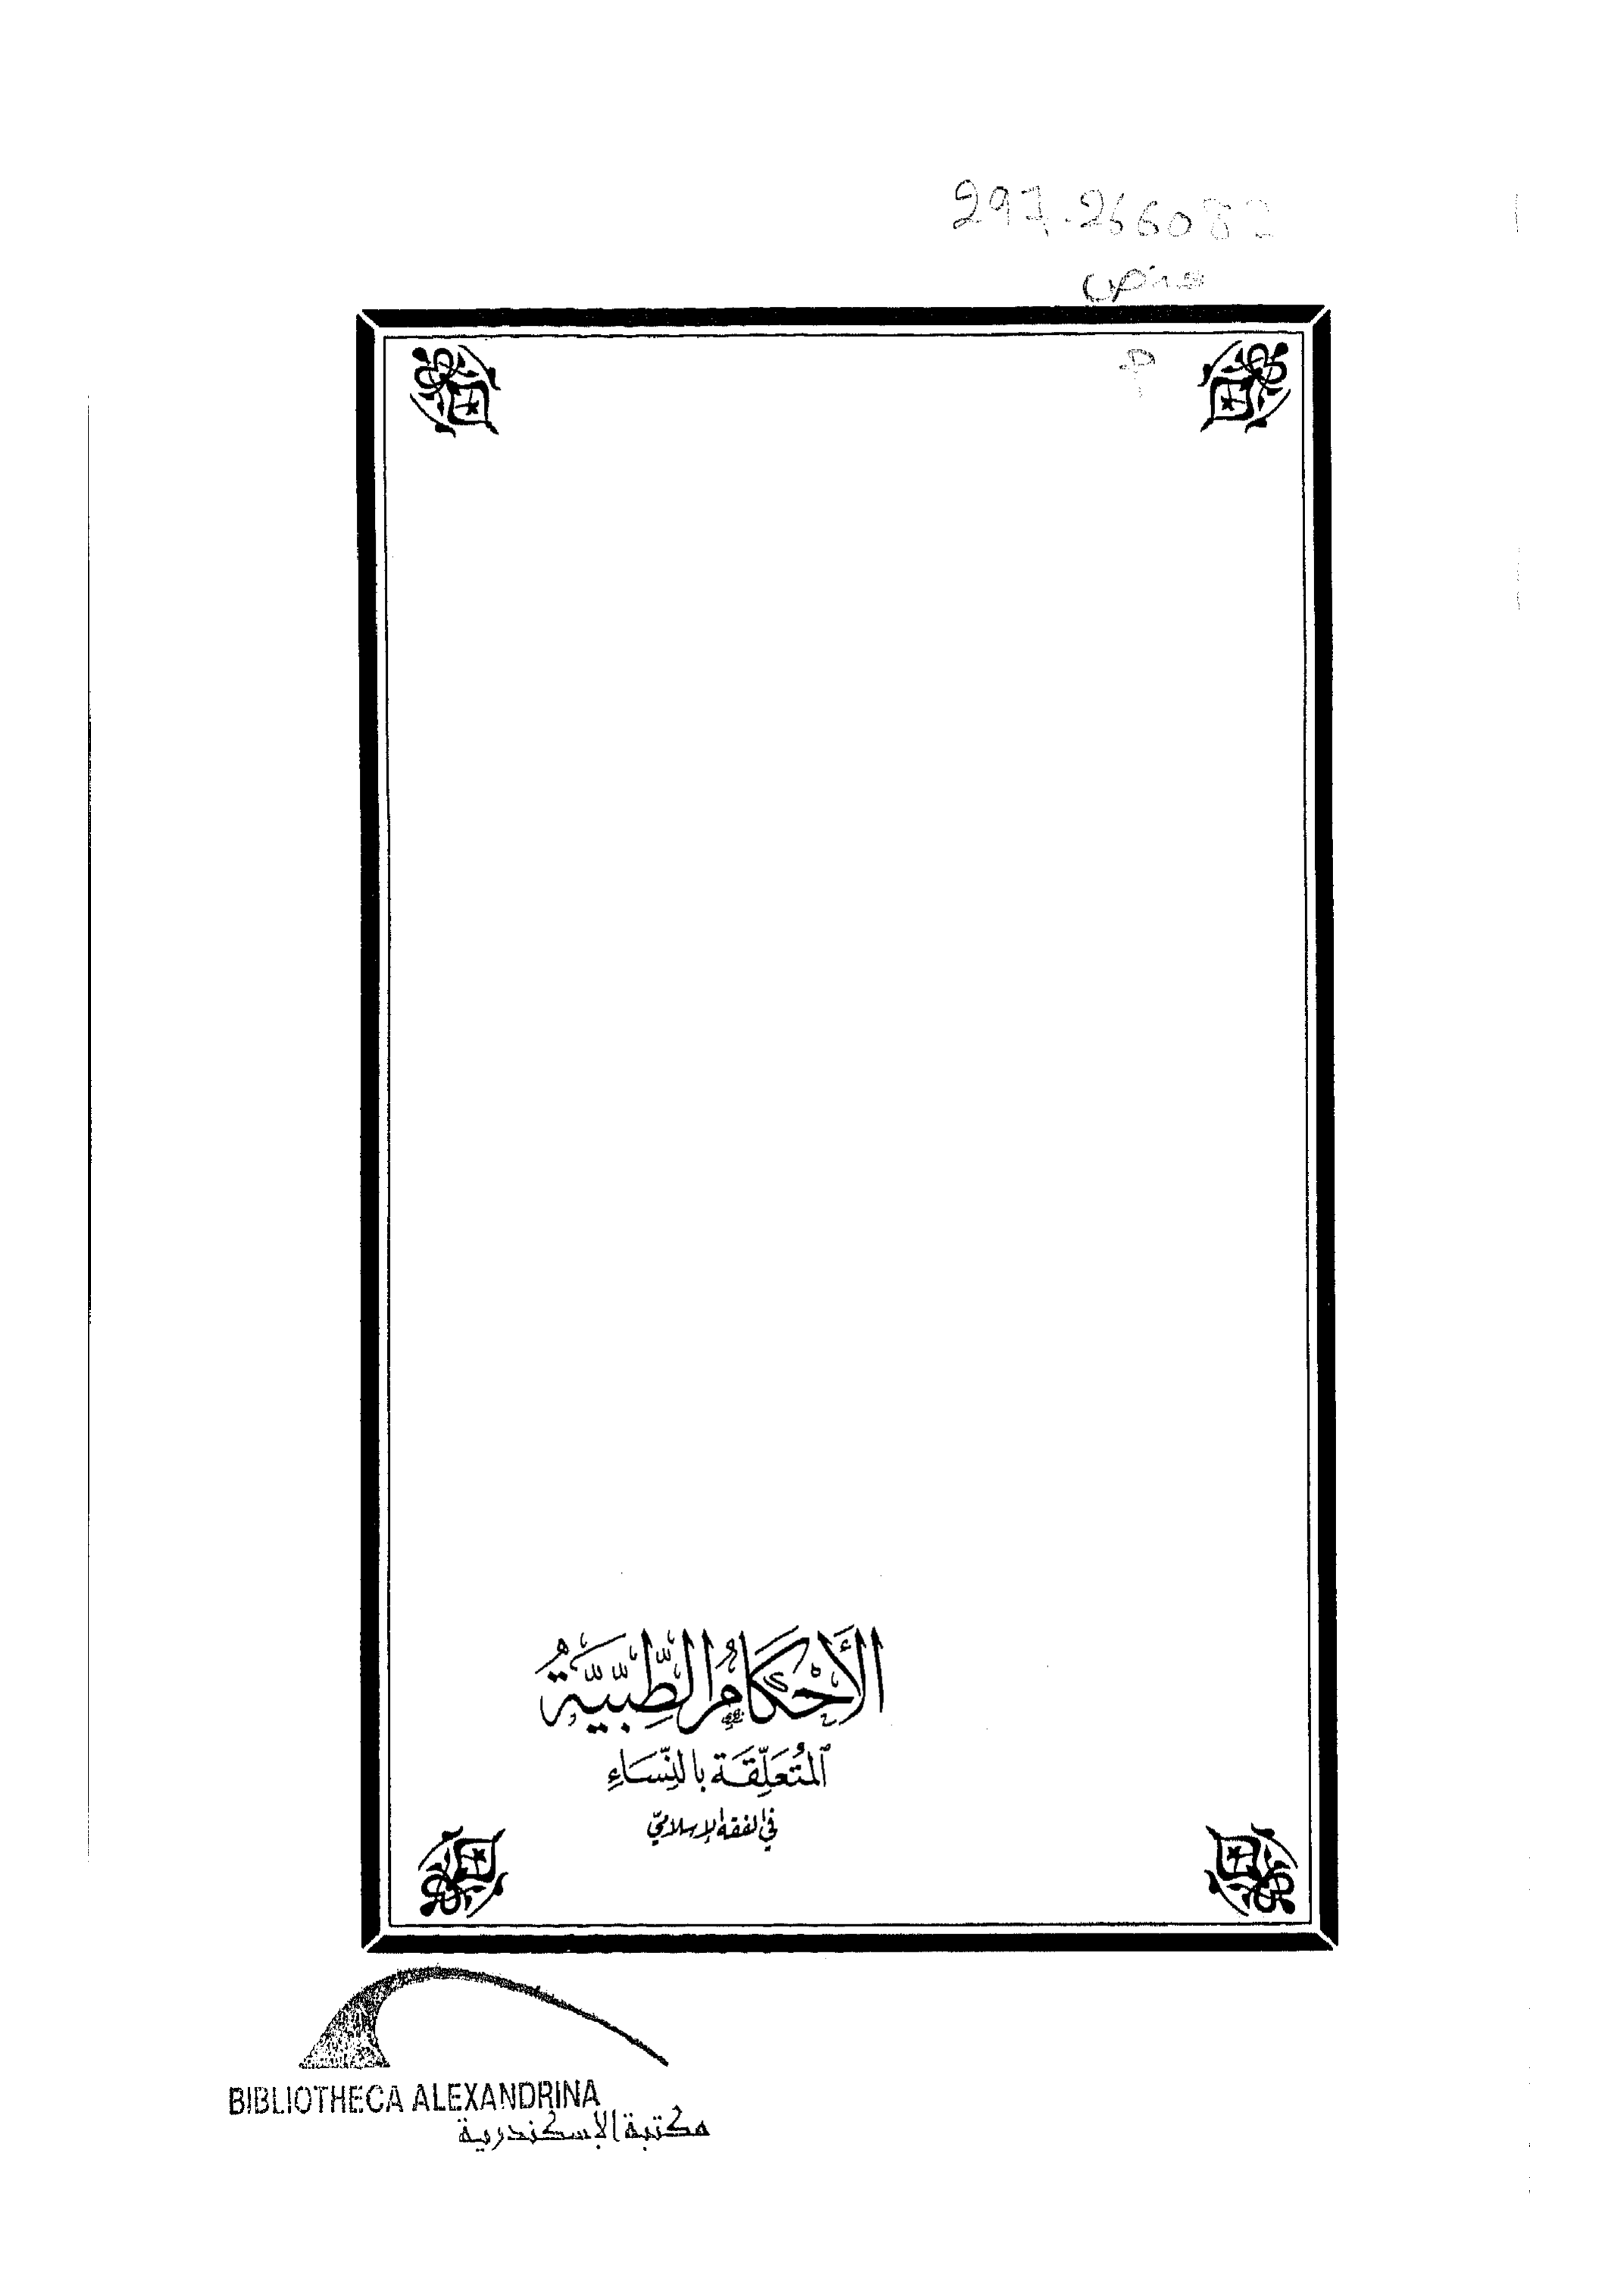 297.266082
الأَحْكَامُ الطِّبِّيَّةُ
المُتَعَلِّقَة بالنِّسَاءِ
في الفقه الإسلاميّ
BIBLIOTHECA ALEXANDRINA
مكتبة الإسكندرية